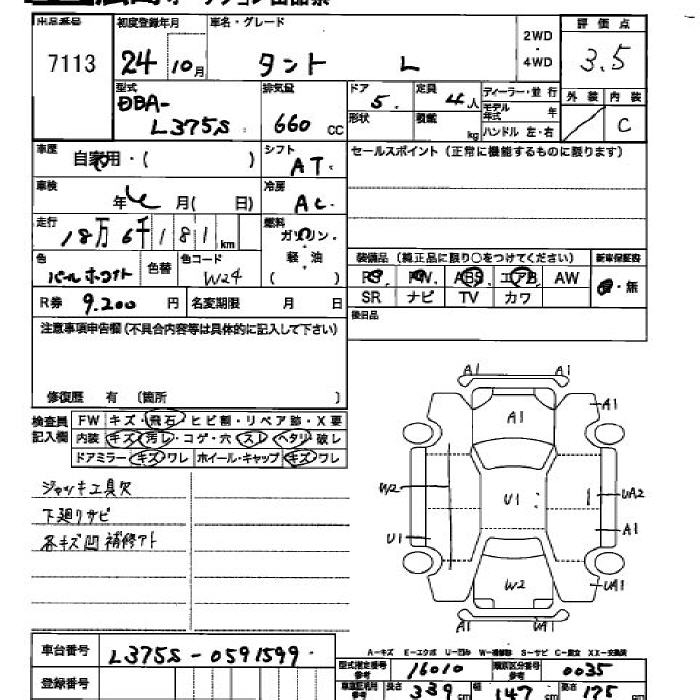 出品番号 初度登録年月 車名・グレード 2WD・4WD 評価点
7113 24 10月 タント L 3.5
型式 排気量 ドア 定員 ディーラー・並行 外装 内装
DBA- 5. 4人 モデル年式 年 C
L375S 660 CC 形状 積載 kg ハンドル 左・右
車歴 自家用・( ) シフト AT. セールスポイント(正常に機能するものに限ります)
車検 年 月( 日) 冷房 AC.
走行 18万6千181km 燃料 ガソリン・軽・油 ( )
色 パールホワイト 色替 色コード W24
装備品(純正品に限り○をつけてください) 新車保証書
PS PW ABS エアB AW 有・無
SR ナビ TV カワ
R券 9.200円 名変期限 月 日
後日品
注意事項申告欄(不具合内容等は具体的に記入して下さい)
修復歴 有 (箇所 )
検査員記入欄
FW キズ・飛石・ヒビ割・リペア跡・X要
内装 キズ・汚レ・コゲ・穴・スレ・ヘタリ・破レ
ドアミラー キズ・ワレ ホイール・キャップ キズ・ワレ
ジャッキ工具欠
下廻りサビ
各キズ凹補修アト
A1 A1
A1 A1
W2 U1 UA2
U1 A1
W2 UA1
U1
A-キズ E-エクボ U-凹み W-補修跡 S-サビ C-腐食 XX-交換済
車台番号 L375S-0591599.
型式指定番号 参考 16010 類別区分番号 参考 0035
登録番号 車検証利用 参考 長さ 339cm 幅 147cm 高さ 175cm